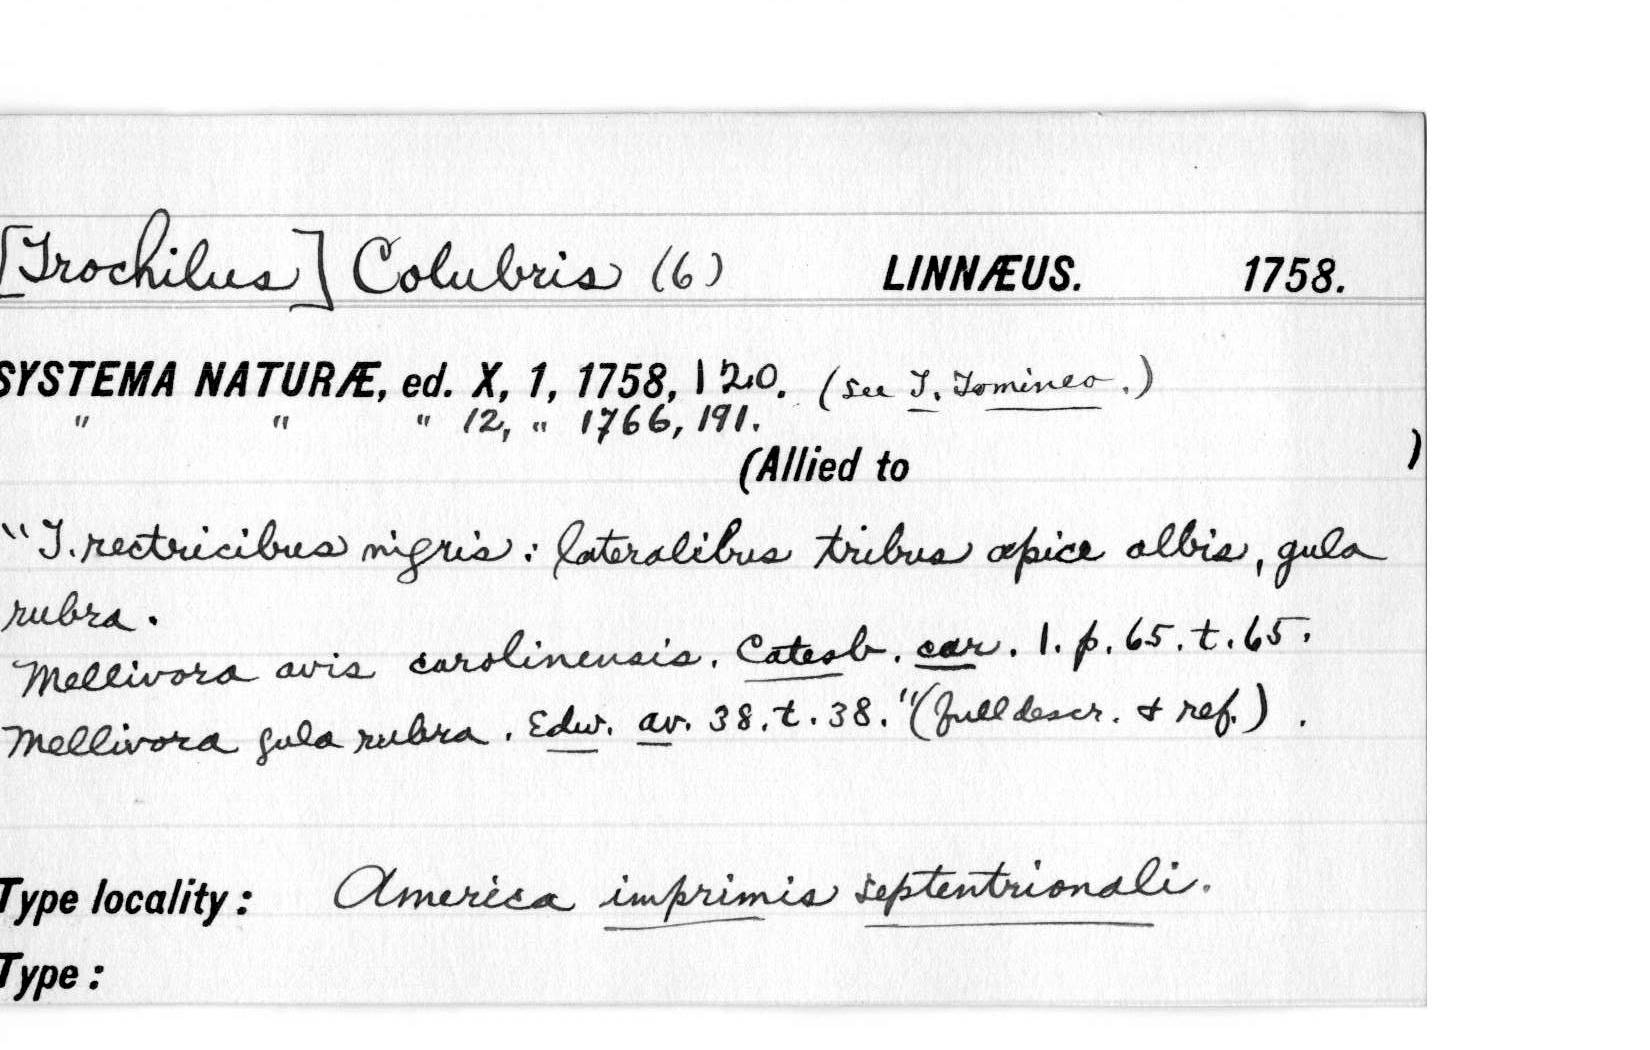 [Trochilus] Colubris (6) LINNÆUS. 1758.
SYSTEMA NATURÆ, ed. X, 1, 1758, 120. (see T. Tomineo.)
" " " 12, " 1766, 191.
(Allied to )
"T. rectricibus nigris: lateralibus tribus apice albis, gula
rubra.
Mellivora avis carolinensis. Catesb. car. 1. p. 65. t. 65.
Mellivora gula rubra. Edw. av. 38. t. 38." (full descr. & ref.).
Type locality: America imprimis septentrionali.
Type: